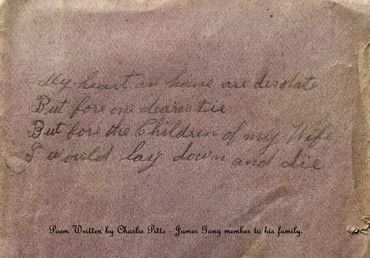 My heart an home are desolate
But fore one dearest tie
But fore the Children of my Wife
I would lay down and die
Poem Written by Charlie Pitts - James Gang member to his family.